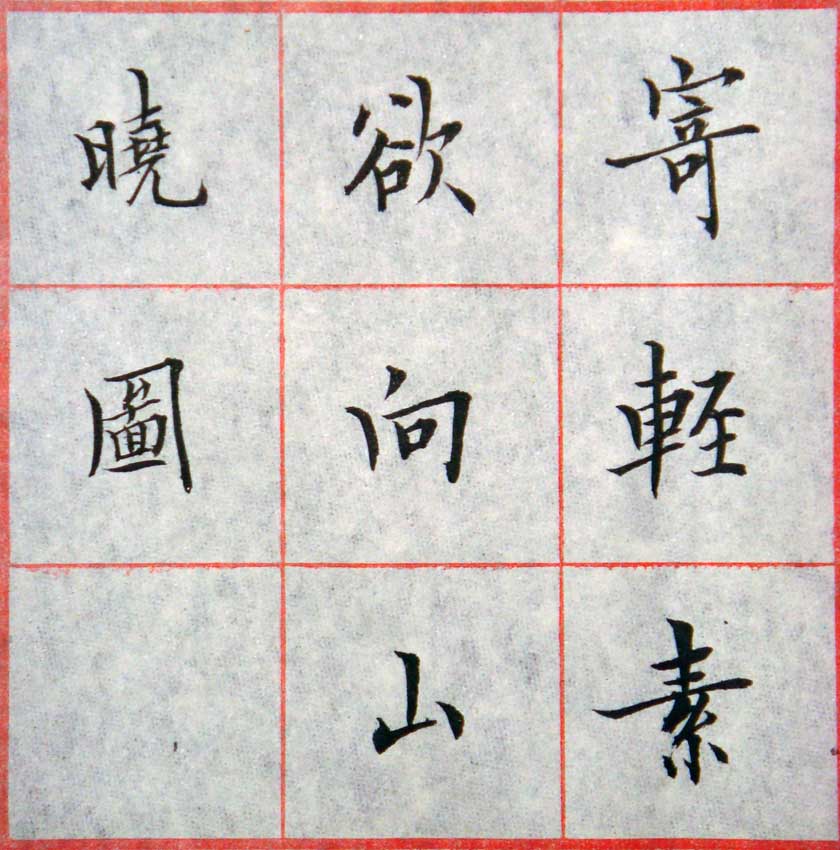 寄輕素
欲向山
曉圖